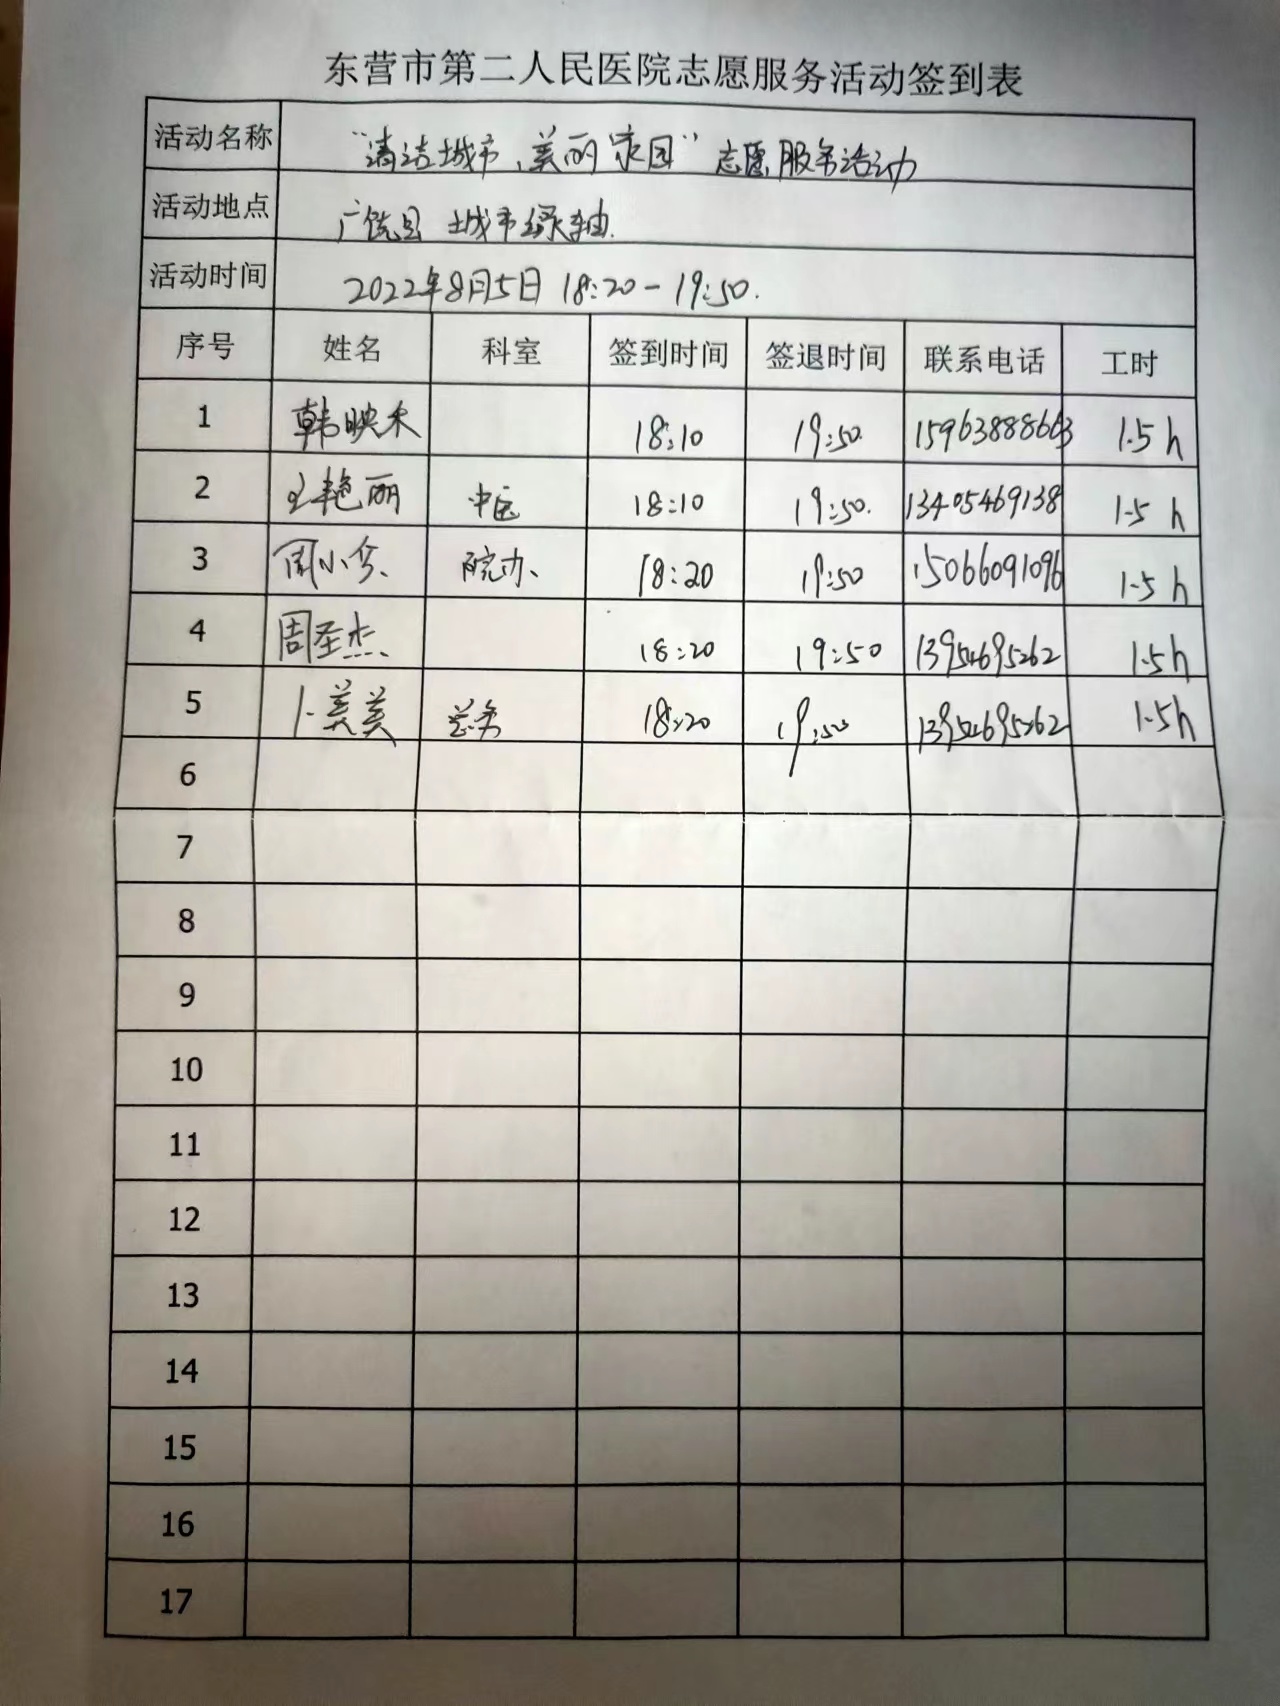 东营市第二人民医院志愿服务活动签到表
活动名称 “清洁城市、美丽家园”志愿服务活动
活动地点 广饶县 城市绿轴.
活动时间 2022年8月5日 18:20-19:50.
序号 姓名 科室 签到时间 签退时间 联系电话 工时
1 韩映禾 18:10 19:50. 1.5h
2 王艳丽 中医 18:10 19:50. 13405469138 1.5h
3 周小 院办、 18:20 19:50 15066091096 1.5h
4 周圣杰 18:20 19:50 13954695262 1.5h
5 美美 18:20 19:50 13954695262 1.5h
6
7
8
9
10
11
12
13
14
15
16
17